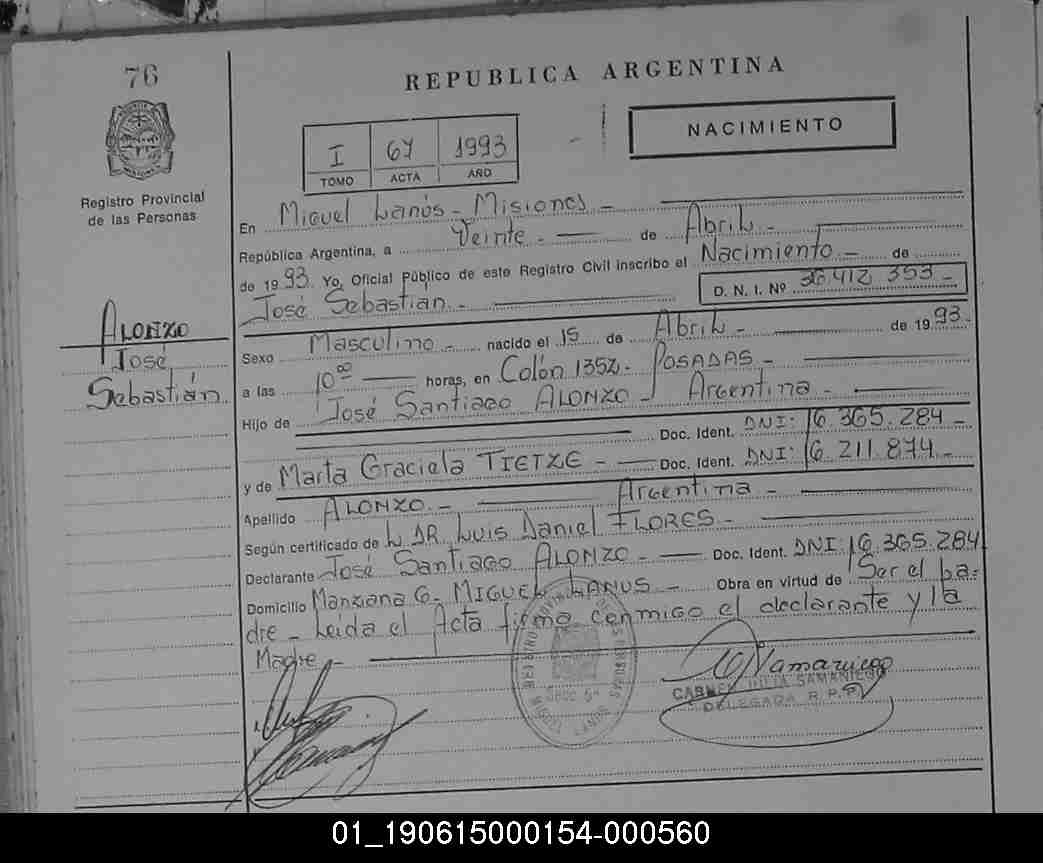 76
REPUBLICA ARGENTINA
NACIMIENTO
I 67 1993
TOMO ACTA AÑO
Registro Provincial
de las Personas
En Miguel Lanús - Misiones -
República Argentina, a Veinte - de Abril -
de 1993. Yo, Oficial Público de este Registro Civil inscribo el Nacimiento - de
José Sebastián - D. N. I. Nº 36.412.353 -
ALONZO
José
Sebastián
Sexo Masculino - nacido el 15 de Abril - de 1993 -
a las 10⁰⁰ horas, en Colón 1352 - POSADAS -
Hijo de José Santiago ALONZO - Argentina -
Doc. Ident. DNI: 16.365.284 -
y de Marta Graciela TIETZE - Doc. Ident. DNI: 16.211.874 -
Argentina -
Apellido ALONZO -
Según certificado de L DR. Luis Daniel FLORES -
Declarante José Santiago ALONZO - Doc. Ident. DNI: 16.365.284
Domicilio Manzana G - MIGUEL LANUS - Obra en virtud de Ser el pa-
dre - Leída el Acta firma conmigo el declarante y la
Madre -
CARMEN SAMANIEGO
DELEGADA R.P.P
01_190615000154-000560